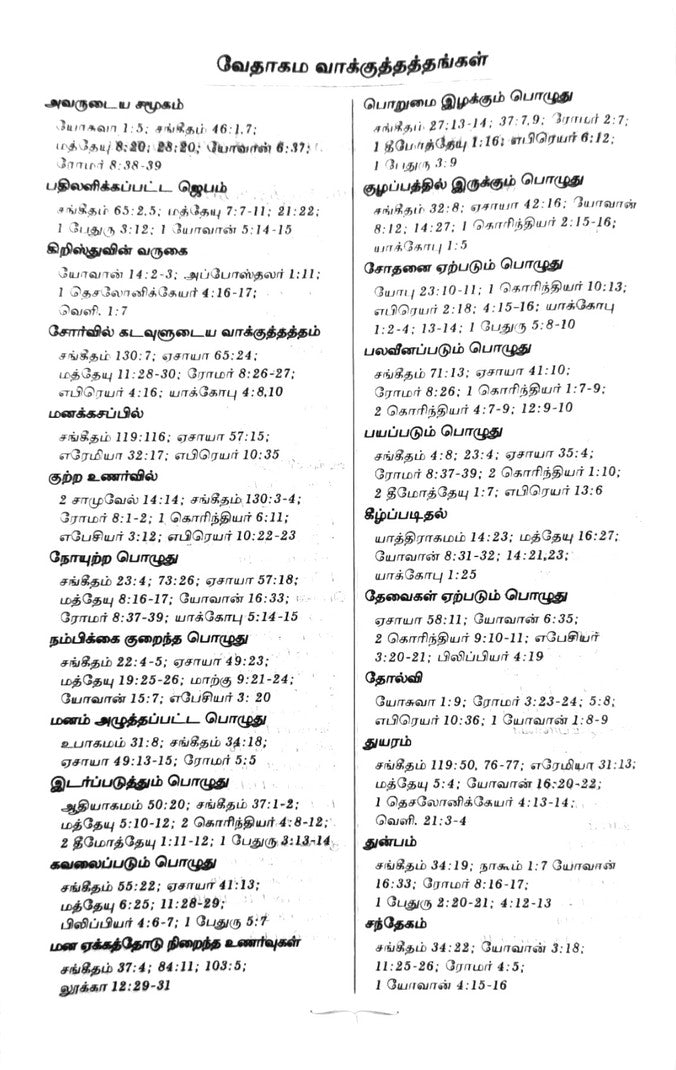 வேதாகம வாக்குத்தத்தங்கள்
அவருடைய சமூகம்
யோசுவா 1:5; சங்கீதம் 46:1,7;
மத்தேயு 8:20; 28:20; யோவான் 6:37;
ரோமர் 8:38-39
பதிலளிக்கப்பட்ட ஜெபம்
சங்கீதம் 65:2,5; மத்தேயு 7:7-11; 21:22;
1 பேதுரு 3:12; 1 யோவான் 5:14-15
கிறிஸ்துவின் வருகை
யோவான் 14:2-3; அப்போஸ்தலர் 1:11;
1 தெசலோனிக்கேயர் 4:16-17;
வெளி. 1:7
சோர்வில் கடவுளுடைய வாக்குத்தத்தம்
சங்கீதம் 130:7; ஏசாயா 65:24;
மத்தேயு 11:28-30; ரோமர் 8:26-27;
எபிரெயர் 4:16; யாக்கோபு 4:8,10
மனக்கசப்பில்
சங்கீதம் 119:116; ஏசாயா 57:15;
எரேமியா 32:17; எபிரெயர் 10:35
குற்ற உணர்வில்
2 சாமுவேல் 14:14; சங்கீதம் 130:3-4;
ரோமர் 8:1-2; 1 கொரிந்தியர் 6:11;
எபேசியர் 3:12; எபிரெயர் 10:22-23
நோயுற்ற பொழுது
சங்கீதம் 23:4; 73:26; ஏசாயா 57:18;
மத்தேயு 8:16-17; யோவான் 16:33;
ரோமர் 8:37-39; யாக்கோபு 5:14-15
நம்பிக்கை குறைந்த பொழுது
சங்கீதம் 22:4-5; ஏசாயா 49:23;
மத்தேயு 19:25-26; மாற்கு 9:21-24;
யோவான் 15:7; எபேசியர் 3: 20
மனம் அழுத்தப்பட்ட பொழுது
உபாகமம் 31:8; சங்கீதம் 34:18;
ஏசாயா 49:13-15; ரோமர் 5:5
இடர்ப்படுத்தும் பொழுது
ஆதியாகமம் 50:20; சங்கீதம் 37:1-2;
மத்தேயு 5:10-12; 2 கொரிந்தியர் 4:8-12;
2 தீமோத்தேயு 1:11-12; 1 பேதுரு 3:13-14
கவலைப்படும் பொழுது
சங்கீதம் 55:22; ஏசாயா 41:13;
மத்தேயு 6:25; 11:28-29;
பிலிப்பியர் 4:6-7; 1 பேதுரு 5:7
மன ஏக்கத்தோடு நிறைந்த உணர்வுகள்
சங்கீதம் 37:4; 84:11; 103:5;
லூக்கா 12:29-31
பொறுமை இழக்கும் பொழுது
சங்கீதம் 27:13-14; 37:7,9; ரோமர் 2:7;
1 தீமோத்தேயு 1:16; எபிரெயர் 6:12;
1 பேதுரு 3:9
குழப்பத்தில் இருக்கும் பொழுது
சங்கீதம் 32:8; ஏசாயா 42:16; யோவான்
8:12; 14:27; 1 கொரிந்தியர் 2:15-16;
யாக்கோபு 1:5
சோதனை ஏற்படும் பொழுது
யோபு 23:10-11; 1 கொரிந்தியர் 10:13;
எபிரெயர் 2:18; 4:15-16; யாக்கோபு
1:2-4; 13-14; 1 பேதுரு 5:8-10
பலவீனப்படும் பொழுது
சங்கீதம் 71:13; ஏசாயா 41:10;
ரோமர் 8:26; 1 கொரிந்தியர் 1:7-9;
2 கொரிந்தியர் 4:7-9; 12:9-10
பயப்படும் பொழுது
சங்கீதம் 4:8; 23:4; ஏசாயா 35:4;
ரோமர் 8:37-39; 2 கொரிந்தியர் 1:10;
2 தீமோத்தேயு 1:7; எபிரெயர் 13:6
கீழ்ப்படிதல்
யாத்திராகமம் 14:23; மத்தேயு 16:27;
யோவான் 8:31-32; 14:21,23;
யாக்கோபு 1:25
தேவைகள் ஏற்படும் பொழுது
ஏசாயா 58:11; யோவான் 6:35;
2 கொரிந்தியர் 9:10-11; எபேசியர்
3:20-21; பிலிப்பியர் 4:19
தோல்வி
யோசுவா 1:9; ரோமர் 3:23-24; 5:8;
எபிரெயர் 10:36; 1 யோவான் 1:8-9
துயரம்
சங்கீதம் 119:50, 76-77; எரேமியா 31:13;
மத்தேயு 5:4; யோவான் 16:20-22;
1 தெசலோனிக்கேயர் 4:13-14;
வெளி. 21:3-4
துன்பம்
சங்கீதம் 34:19; நாகூம் 1:7 யோவான்
16:33; ரோமர் 8:16-17;
1 பேதுரு 2:20-21; 4:12-13
சந்தேகம்
சங்கீதம் 34:22; யோவான் 3:18;
11:25-26; ரோமர் 4:5;
1 யோவான் 4:15-16